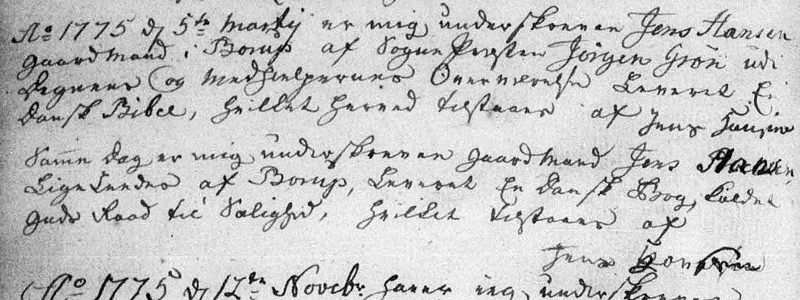 Ao 1775 d 5te Martij er mig underskreven Jens Hansen
gaardMand i Borup af Sogne Præsten Jørgen Grøn udi
Degnens og Medhielpernes Overværelse Leveret En
Dansk Bibel, hvilket herved tilstaaes af Jens Hansen
Samme dag er mig underskreven gaardMand Jens Hansen,
Lige Leedes af Borup, Leveret En dansk Bog, kaldet
Guds Raad til Salighed, hvilket tilstaaes af
Jens Hansen
Ao 1775 d 12te Novebr haver jeg underskreven